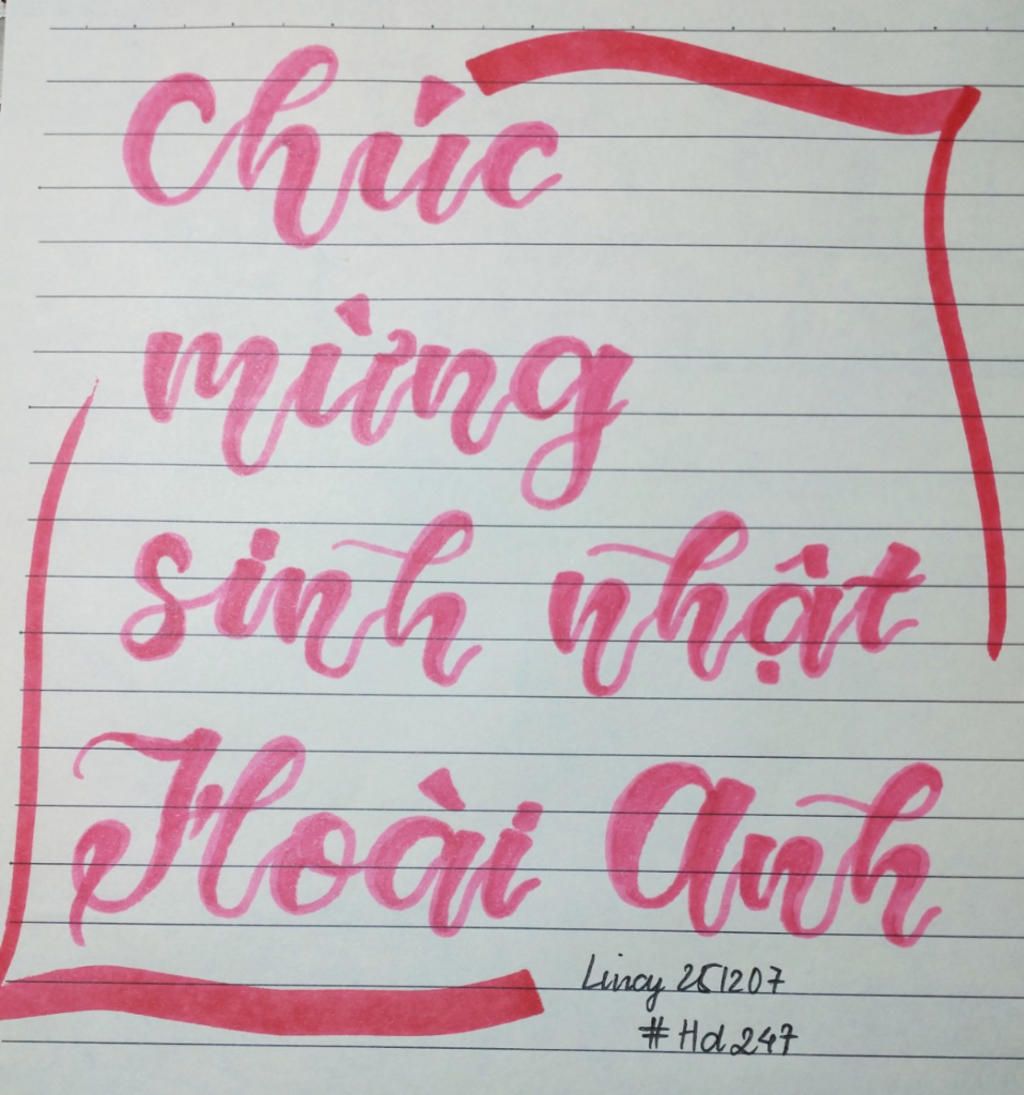 Chúc
mừng
sinh nhật
Hoài Anh
Lincy 251207
#Hd247